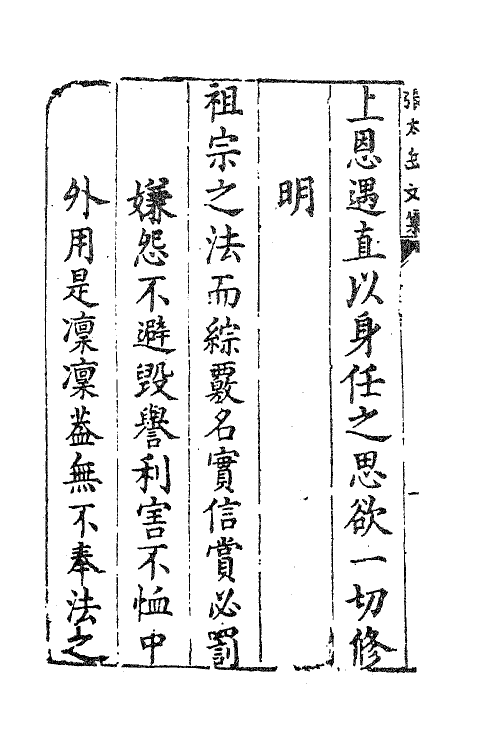 張太岳文集
上恩遇直以身任之思欲一切修
明
祖宗之法而綜覈名實信賞必罰
嫌怨不避毀譽利害不恤中
外用是凜凜葢無不奉法之